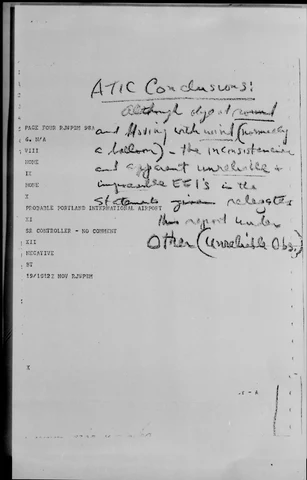 ATIC Conclusions:
Although object round
and Moving with wind (normally
a balloon) - the inconsistencies
and apparent unreliable +
improbable EEI'S in the
statements given relegates
this report under
Other (Unreliable Obs.)
PAGE FOUR RJWPSM 98A
G. N/A
VIII
NONE
IX
NONE
X
PROBABLE PORTLAND INTERNATIONAL AIRPORT
XI
SS CONTROLLER - NO COMMENT
XII
NEGATIVE
BT
19/1912Z NOV RJWPSM